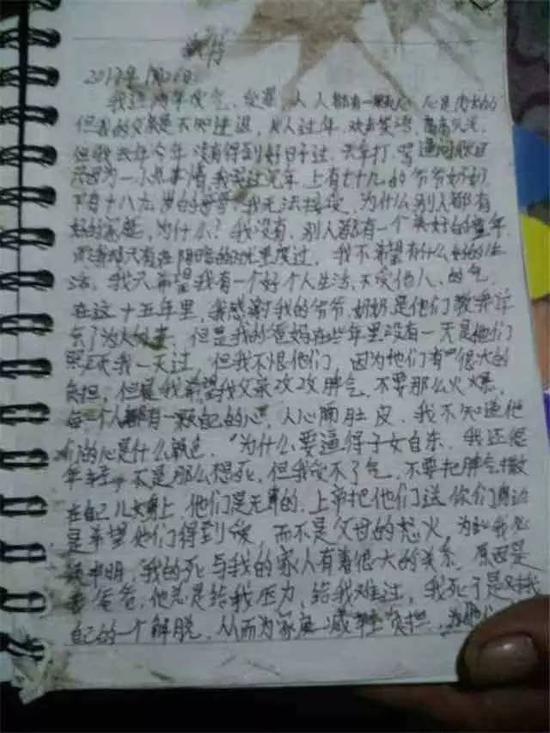 2017年1月26日
我这两年受气、受累，人人都有一颗心，心是肉长的
但我的父亲是不知道退，别人过年，欢声笑语，高高兴兴，
但我去年今年没有得到好日子过，去年打、骂
因为一个 事情，我 上有七十九的爷爷奶奶
下有十八九岁的 我无法接受，为什么别人都有
好的家庭，为什么？我没有，别人都有一个美好的童年
只有在阴暗的 里度过，我不希望有什么好的生
活，我只希望我有一个好个人生活，不受他人的气
在这十五年里，我感谢我的爷爷、奶奶是他们教我学
会了为人处事，但是我的爸妈在些年里没有一天是他们
陪我一天过，但我不恨他们，因为他们有很大的
负担，但是我希望我父亲改改脾气，不要那么火爆，
每一个人都有一颗自己的心，人心隔肚皮，我不知道他
们的心是什么颜色，“为什么要逼得子女自杀，我还很
年轻，不是那么想死，但我受不了气，不要把脾气撒
在自己儿女身上，他们是无辜的，上帝把他们送你们身边
是希望他们得到 ，而不是父母的怒火，
申明，我的死与我的家人有着很大的关系，原因是
我爸爸，他总是给我压力，给我难过，我死了是对我
自己的一个解脱，从而为家庭减轻负担，